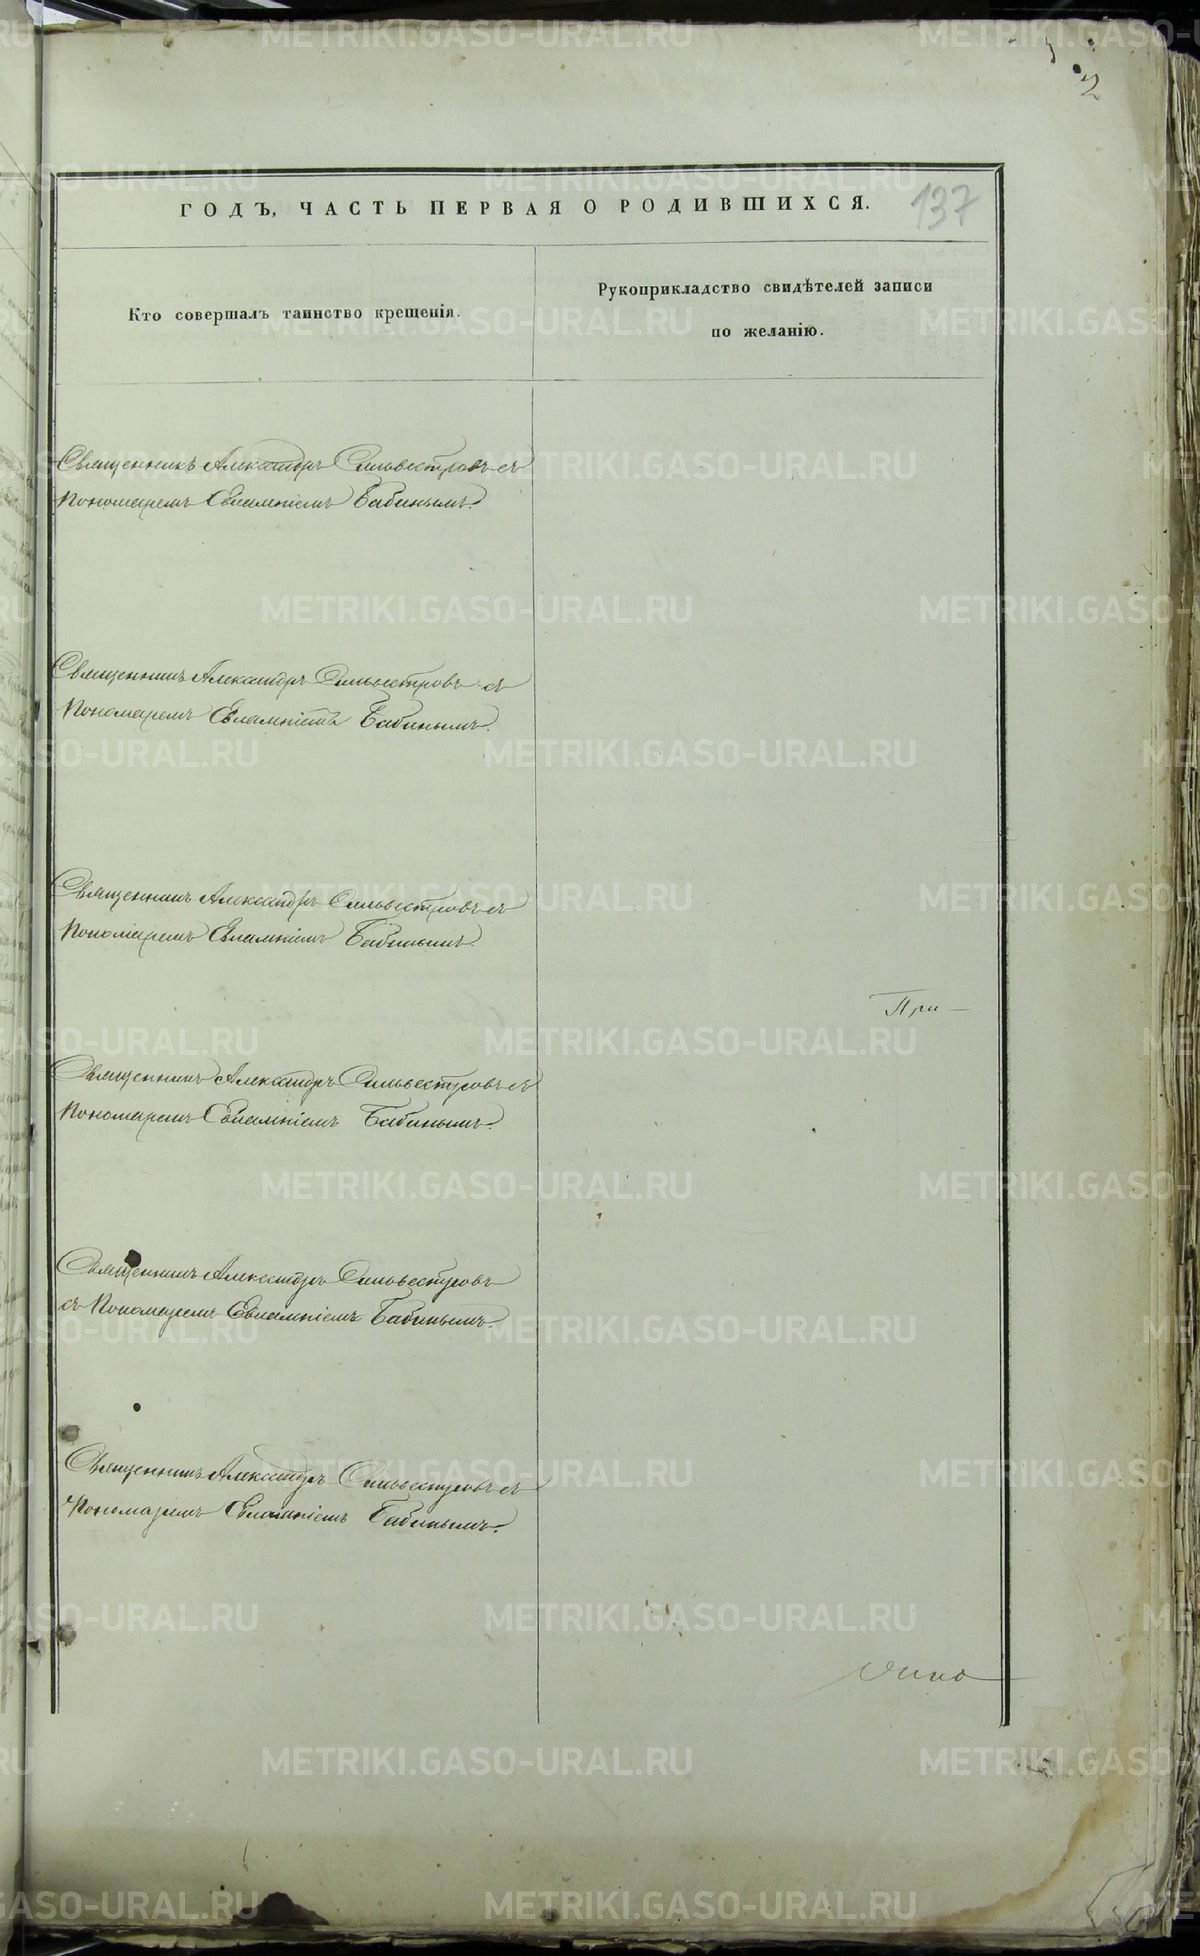 2
ГОДЪ, ЧАСТЬ ПЕРВАЯ О РОДИВШИХСЯ.
137
Кто совершалъ таинство крещенія.
Рукоприкладство свидѣтелей записи
по желанію.
Священникъ Александръ Сильвестровъ съ
Пономаремъ Евлампіемъ Бабинымъ.
Священникъ Александръ Сильвестровъ съ
Пономаремъ Евлампіемъ Бабинымъ.
Священникъ Александръ Сильвестровъ съ
Пономаремъ Евлампіемъ Бабинымъ.
При-
Священникъ Александръ Сильвестровъ съ
Пономаремъ Евлампіемъ Бабинымъ.
Священникъ Александръ Сильвестровъ
съ Пономаремъ Евлампіемъ Бабинымъ.
Священникъ Александръ Сильвестровъ съ
Пономаремъ Евлампіемъ Бабинымъ.
METRIKI.GASO-URAL.RU